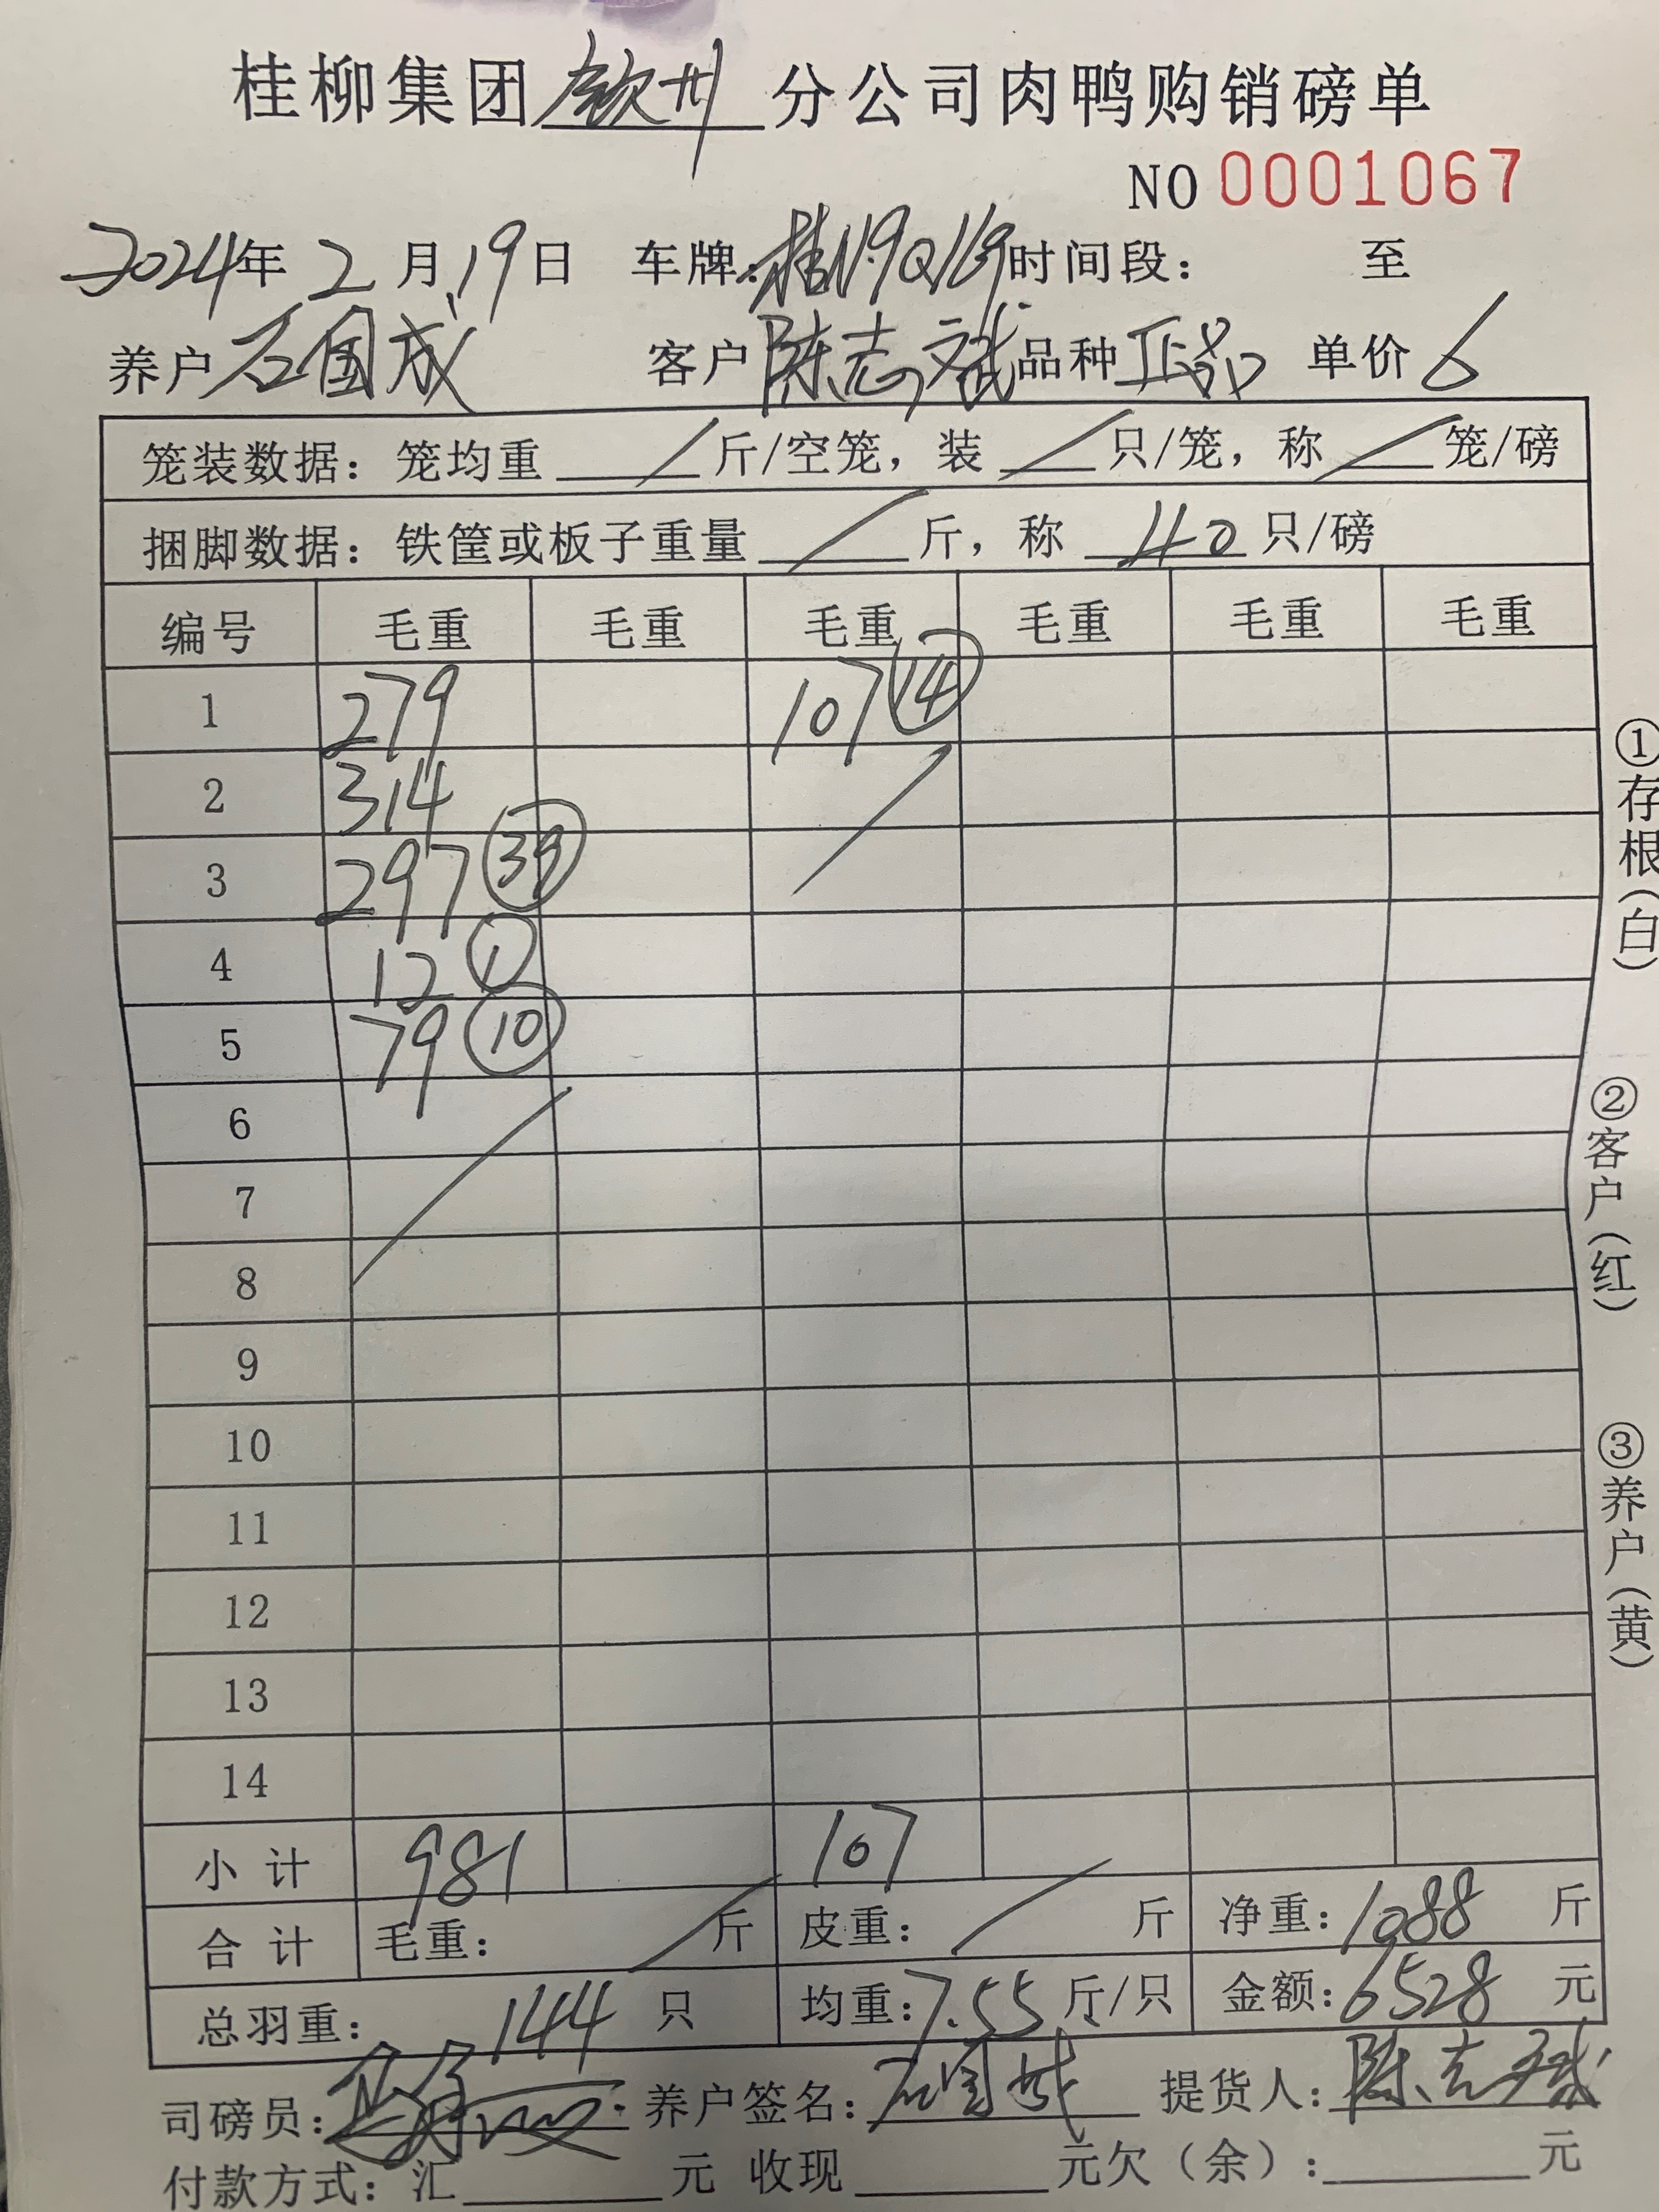 桂柳集团钦州分公司肉鸭购销磅单
NO 0001067
2024年 2 月 19 日 车牌:桂N·9Q 时间段: 至
养户 石国成 客户 陈志斌 品种 正品 单价 6
笼装数据:笼均重 / 斤/空笼,装 / 只/笼,称 / 笼/磅
捆脚数据:铁筐或板子重量 / 斤,称 40 只/磅
编号 毛重 毛重 毛重 毛重 毛重 毛重
1 279 107 ⑭
2 314
3 297 39
4 12 ①
5 79 ⑩
6
7
8
9
10
11
12
13
14
小计 981 107
合计 毛重: / 斤 皮重: / 斤 净重:1088 斤
总羽重: 144 只 均重:7.55 斤/只 金额:6528 元
司磅员: 养户签名:石国成 提货人:陈志斌
付款方式:汇 元 收现 元欠(余): 元
①存根(白)
②客户(红)
③养户(黄)